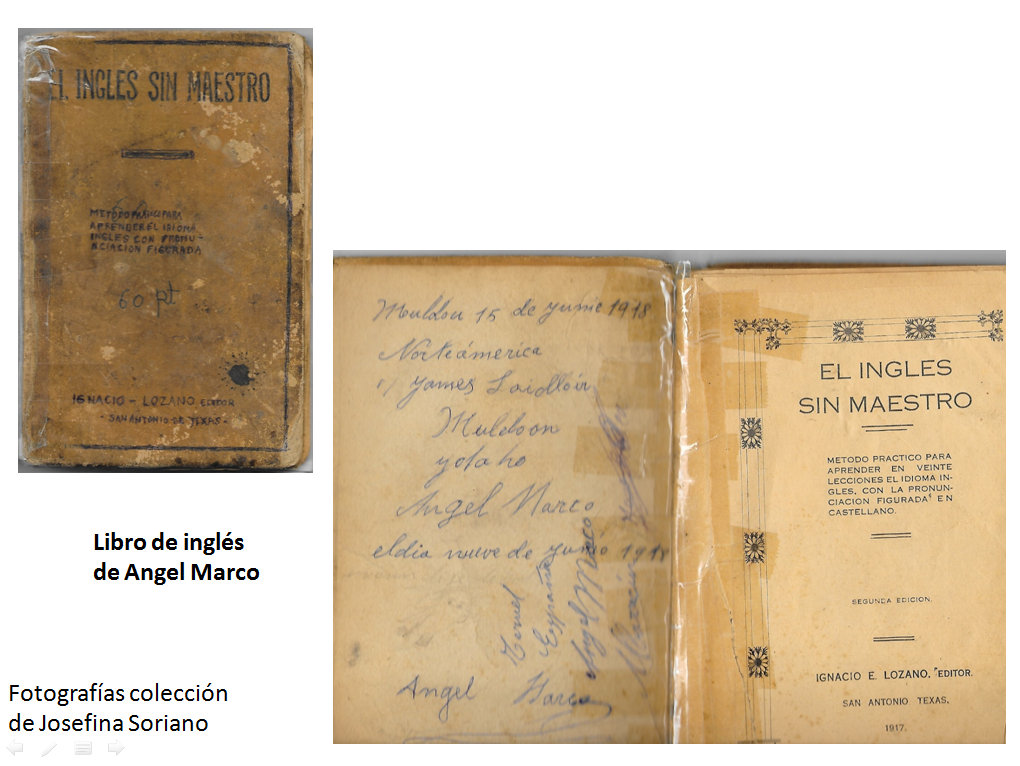 EL INGLES SIN MAESTRO
METODO PRACTICO PARA
APRENDER EL IDIOMA
INGLES CON PRONU-
NCIACION FIGURADA
60 pt
IGNACIO - LOZANO EDITOR
- SAN ANTONIO DE TEXAS -
Libro de inglés
de Angel Marco
Fotografías colección
de Josefina Soriano
Muldou 15 de junie 1918
Norteámerica
James
Muldoon
ydaho
Angel Marco
el dia nueve de junio 1918
Teruel
España
Angel Marco
Angel Marco
EL INGLES
SIN MAESTRO
METODO PRACTICO PARA
APRENDER EN VEINTE
LECCIONES EL IDIOMA IN-
GLES, CON LA PRONUN-
CIACION FIGURADA EN
CASTELLANO.
SEGUNDA EDICION.
IGNACIO E. LOZANO, EDITOR.
SAN ANTONIO TEXAS.
1917.